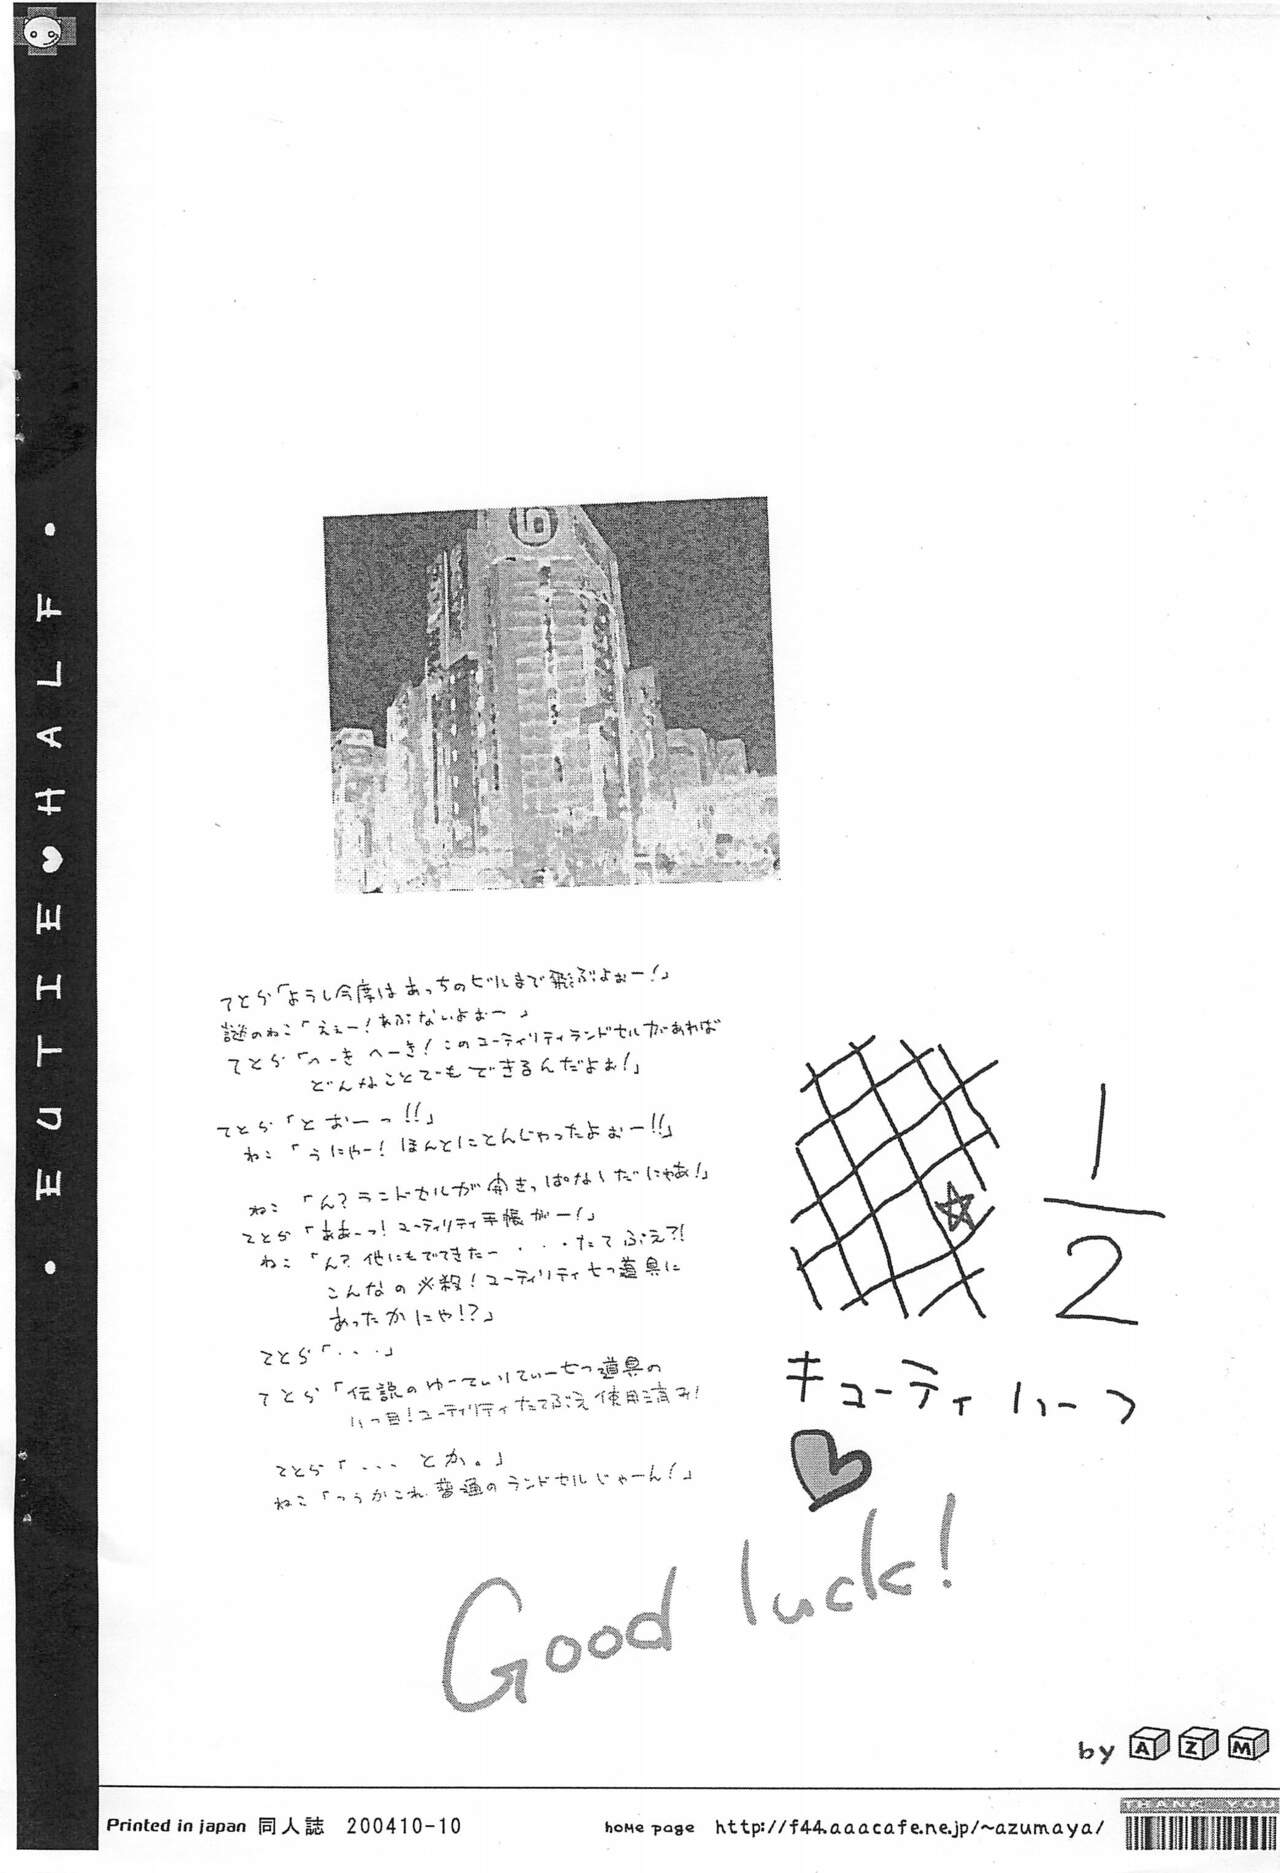 EUTIE♥HALF
6
てとら「ようし今度はあっちのビルまで飛ぶよぉー！」
謎のねこ「えぇー！あぶないよぉー」
てとら「へーき へーき！このユーティリティランドセルがあれば
どんなことでもできるんだよぉ！」
てとら「とおーっ!!」
ねこ「うにゃー！ほんとにとんじゃったよぉー!!」
ねこ「ん？ランドセルが開きっぱなしだにゃあ！」
てとら「ああーっ！ユーティリティ手帳がー！」
ねこ「ん？他にもでてきたー・・・たてぶえ?!
こんなの必殺！ユーティリティ七つ道具に
あったかにゃ!?」
てとら「・・・」
てとら「伝説のゆーてぃりてぃー七つ道具の
八つ目！ユーティリティたてぶえ使用済み！
てとら「... とか。」
ねこ「つうかこれ普通のランドセルじゃーん！」
1
2
キューティハーフ
Good luck!
by AZM
Printed in japan 同人誌 200410-10
home page http://f44.aaacafe.ne.jp/~azumaya/
THANK YOU